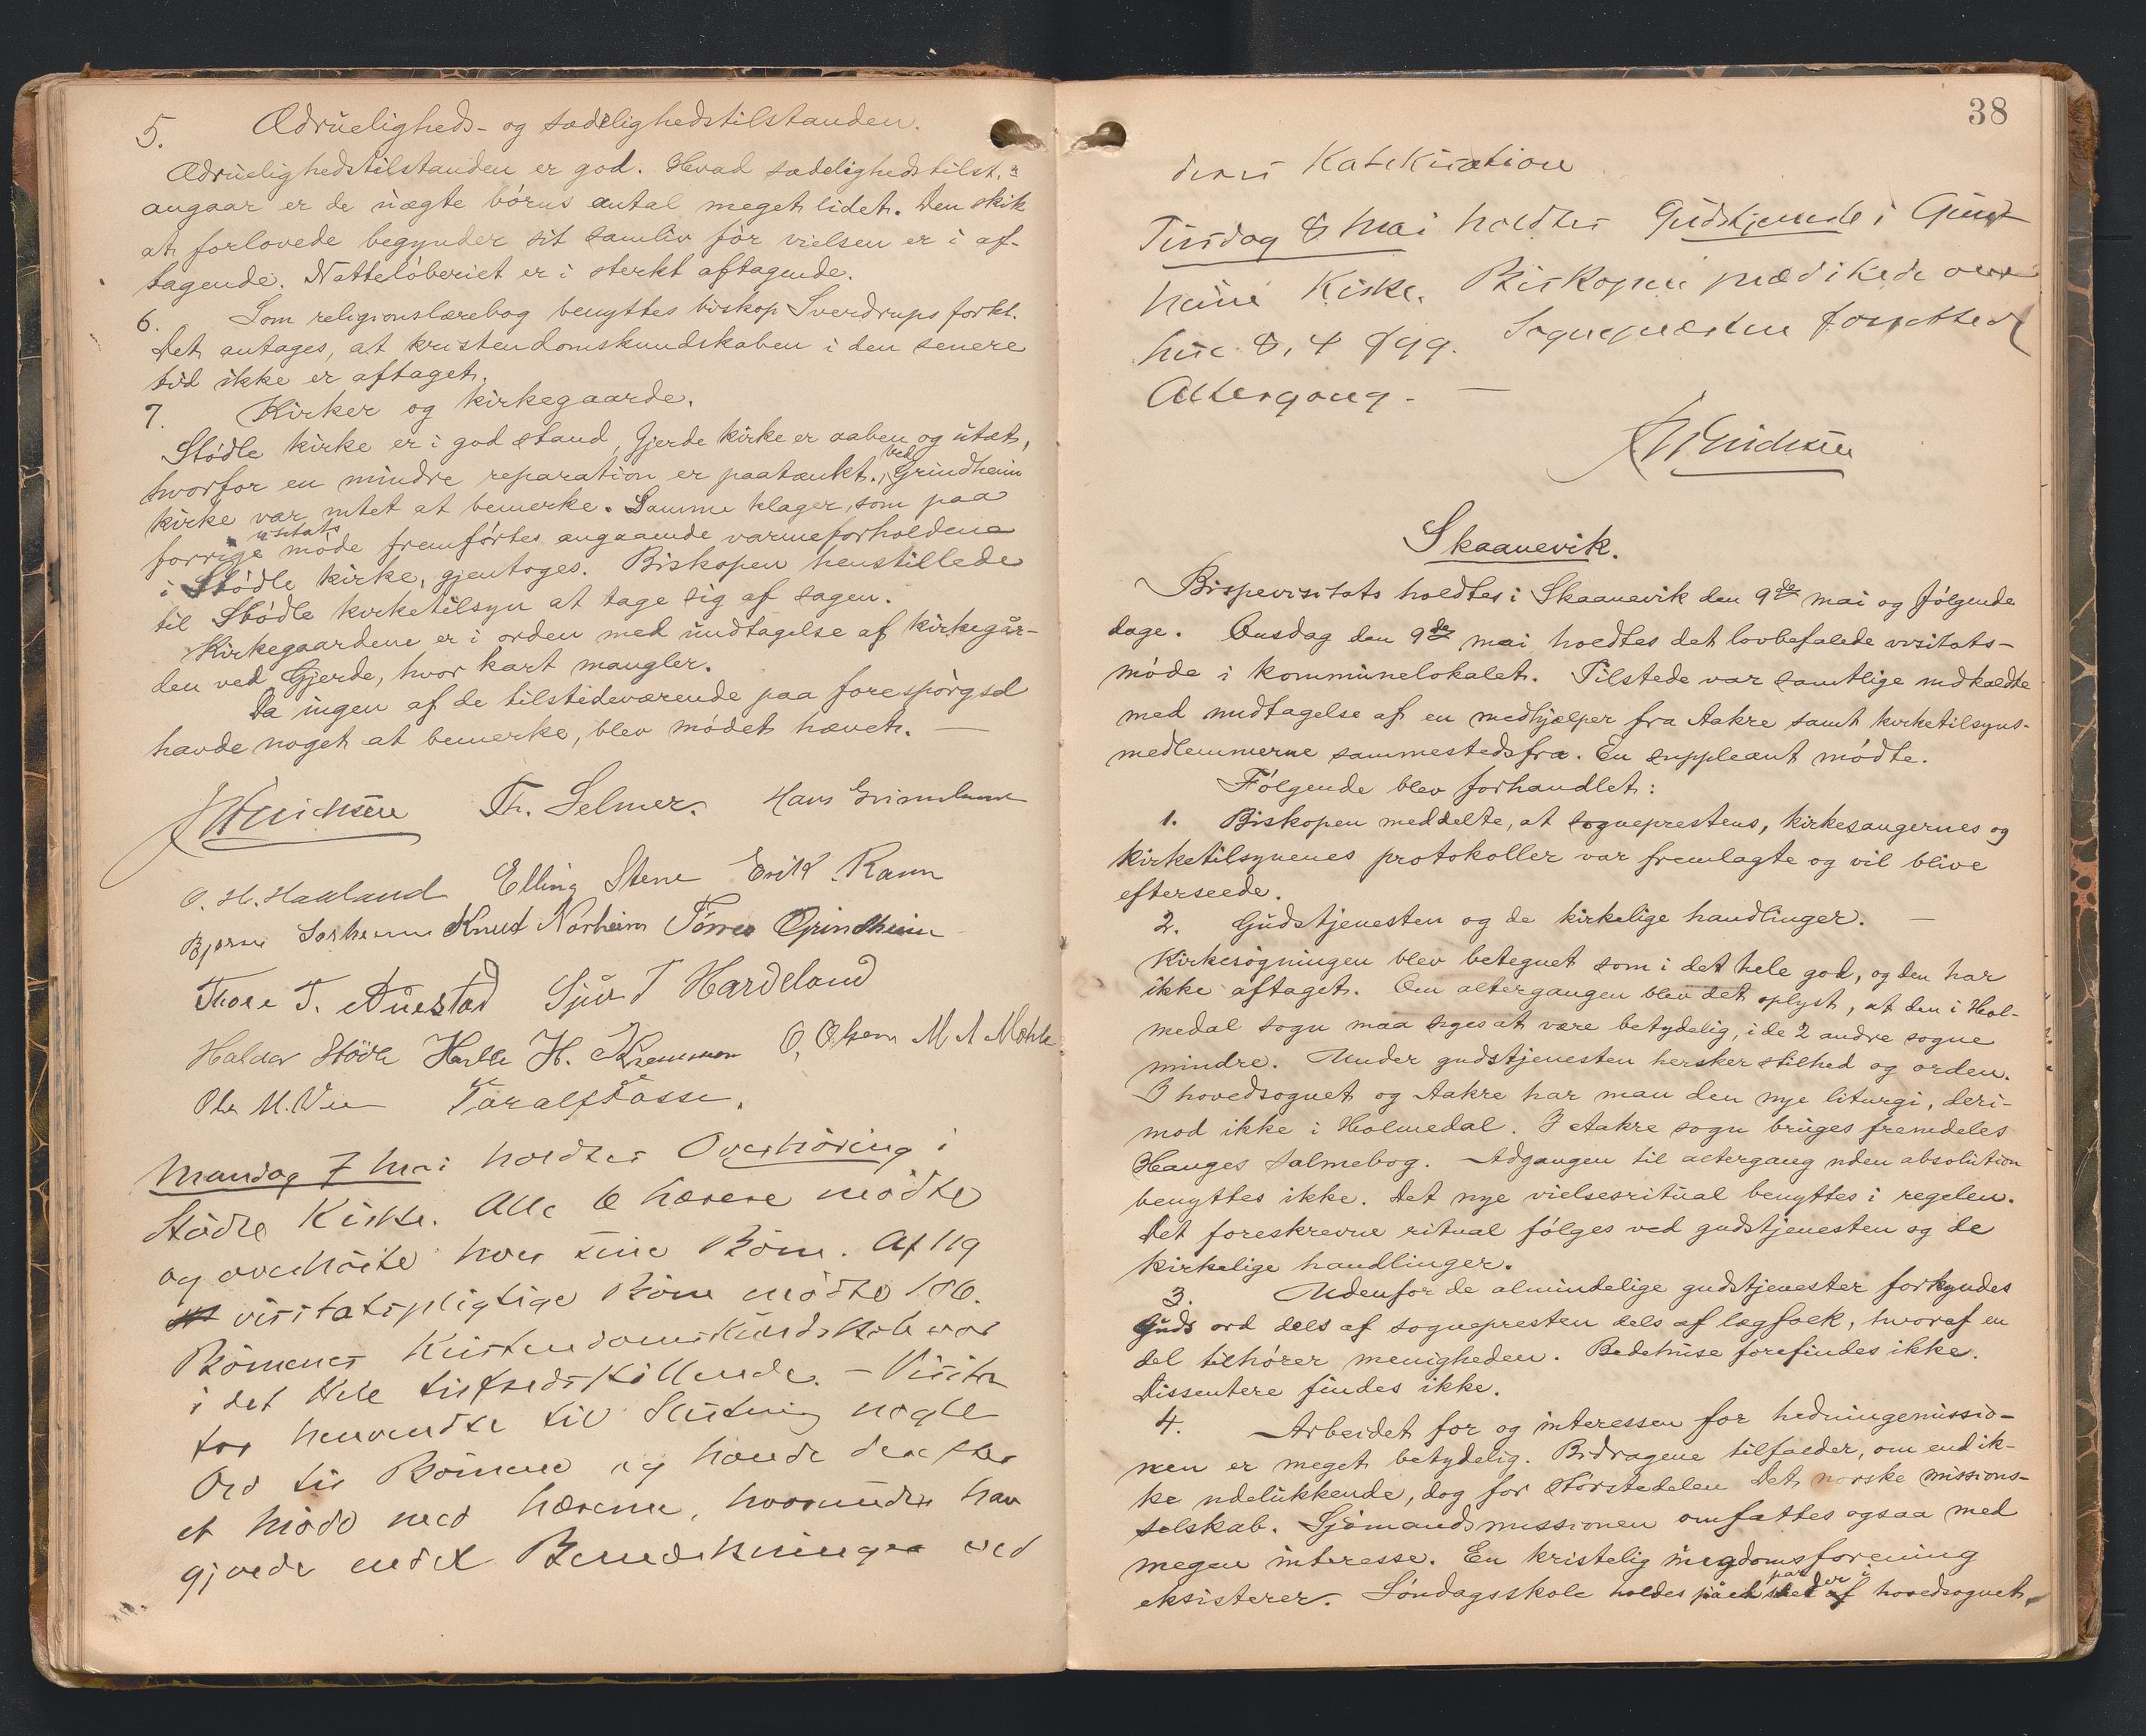 5. Ædrueligheds- og sædelighedstilstanden.
Ædruelighedstilstanden er god. Hvad sædelighedstilst.
angaar er de uægte børns antal meget lidet. Den skik
at forlovede begynder sit samliv før vielsen er i af-
tagende. Natteløberiet er i sterkt aftagende.
6. Som religionslærebog benyttes biskop Sverdrups forkl.
Det antages, at kristendomskundskaben i den senere
tid ikke er aftaget.
7. Kirker og kirkegaarde.
Stødle kirke er i god stand, Gjerde kirke er aaben og utæt,
hvorfor en mindre reparation er paatænkt. ved Grindheim
kirke var intet at bemerke. Samme klager, som paa
forrige visitatsmøde fremførtes angaaende varmeforholdene
i Stødle kirke, gjentoges. Biskopen henstillede
til Stødle kirketilsyn at tage sig af sagen.
Kirkegaardene er i orden med undtagelse af kirkegår-
den ved Gjerde, hvor kart mangler.
Da ingen af de tilstedeværende paa forespørgsel
havde noget at bemerke, blev mødet hævet. —
J W Erichsen Th. Selmer. Hans
O. H. Haaland Elling Stene Erik Ravn
Bjørne Knut Norheim Tørres Grindheim
Tore T. Sjur T Hardeland
Haldor Stødle H. O. Olsen M. A.
Ole M. Vie Taralf Fosse.
Mandag 7 Mai holdtes Overhøring i
Stødle Kirke. Alle 6 Lærere mødte
og overhørte hver sine Børn. Af 119
visitatspligtige Børn mødte 106.
Børnenes Kristendomskundskab var
i det Hele tilfredsstillende. — Visita
tor henvendte til Slutning nogle
Ord til Børnene og havde derefter
et Møde med Lærerne, hvorunder han
gjorde endel Bemerkninger ved
38
deres Katekisation
Tirsdag 8 Mai holdtes Gudstjeneste i Grind
heim Kirke. Biskopen prædikede over
Luc 8, 4 fgg. Sognepræsten forrettede
Altergang. —
J W Erichsen
Skaanevik.
Bispevisitats holdtes i Skaanevik den 9de mai og følgende
dage. Onsdag den 9de mai holdtes det lovbefalede visitats-
møde i kommunelokalet. Tilstede var samtlige indkaldte
med undtagelse af en medhjælper fra Aakre samt kirketilsyns-
medlemmerne sammestedsfra. En suppleant mødte.
Følgende blev forhandlet:
1. Biskopen meddelte, at sogneprestens, kirkesangernes og
kirketilsynenes protokoller var fremlagte og vil blive
efterseede.
2. Gudstjenesten og de kirkelige handlinger. —
Kirkesøgningen blev betegnet som i det hele god, og den har
ikke aftaget. Om altergangen blev det oplyst, at den i Hol-
medal sogn maa siges at være betydelig, i de 2 andre sogne
mindre. Under gudstjenesten hersker stilhed og orden.
I hovedsognet og Aakre har man den nye liturgi, deri-
mod ikke i Holmedal. I Aakre sogn bruges fremdeles
Hauges salmebog. Adgangen til altergang uden absolution
benyttes ikke. Det nye vielsesritual benyttes i regelen.
Det foreskrevne ritual følges ved gudstjenesten og de
kirkelige handlinger.
3. Udenfor de almindelige gudstjenester forkyndes
Guds ord dels af sognepresten dels af lægfolk, hvoraf en
del tilhører menigheden. Bedehuse forefindes ikke.
Dissentere findes ikke.
4. Arbeidet for og interessen for hedningemissio-
nen er meget betydelig. Bidragene tilfalder, om end ik-
ke udelukkende, dog for størstedelen Det norske missions-
selskab. Sjømandsmissionen omfattes ogsaa med
megen interesse. En kristelig ungdomsforening
eksisterer. Søndagsskole holdes på et par steder i hovedsognet.